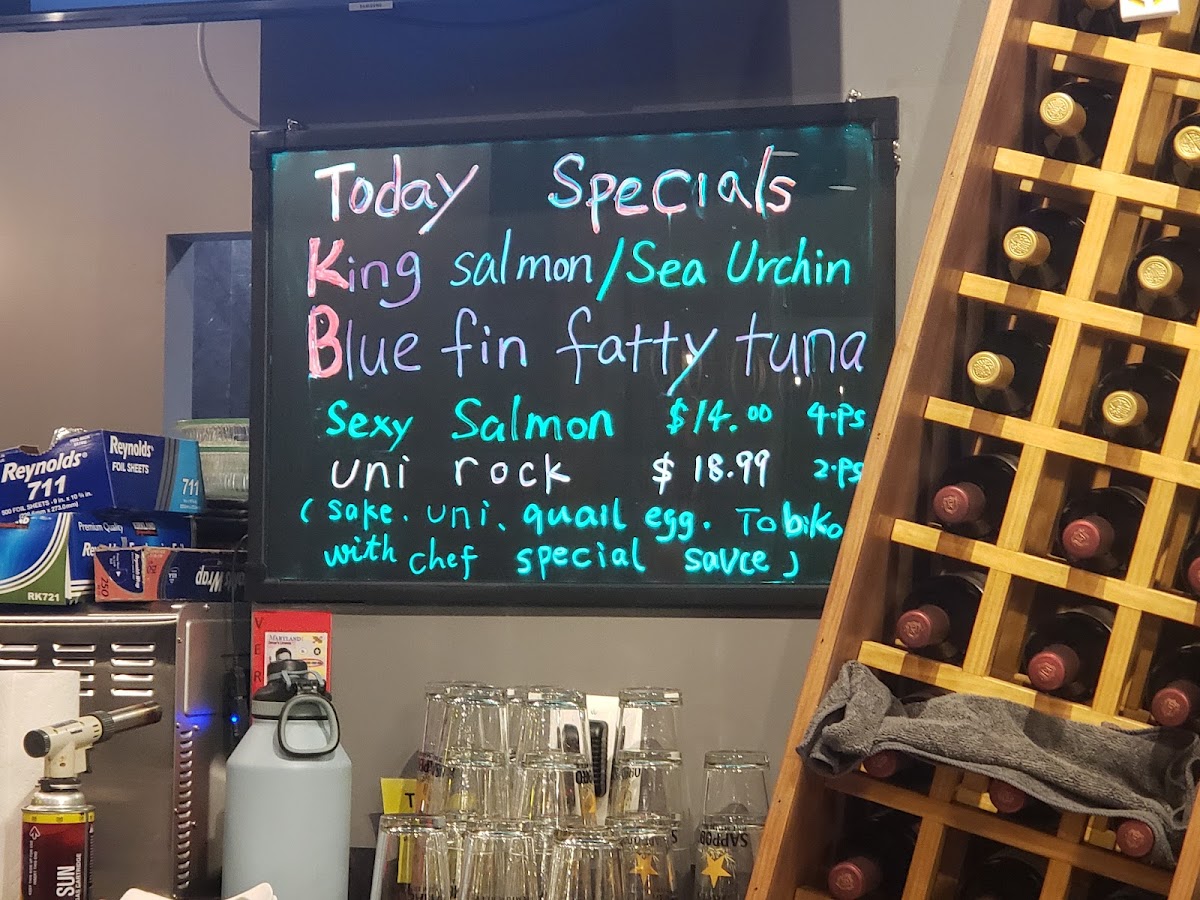 Today Specials
King salmon/Sea Urchin
Blue fin fatty tuna
Sexy Salmon $14.00 4.Ps
uni rock $18.99 2.Ps
(sake. uni. quail egg. Tobiko
with chef special sauce)
Reynolds
FOIL SHEETS
711
Reynolds
711
500 FOIL SHEETS
Premium Quality
RK721
Wrap
250
MARYLAND
VER
SUN
SAPPORO